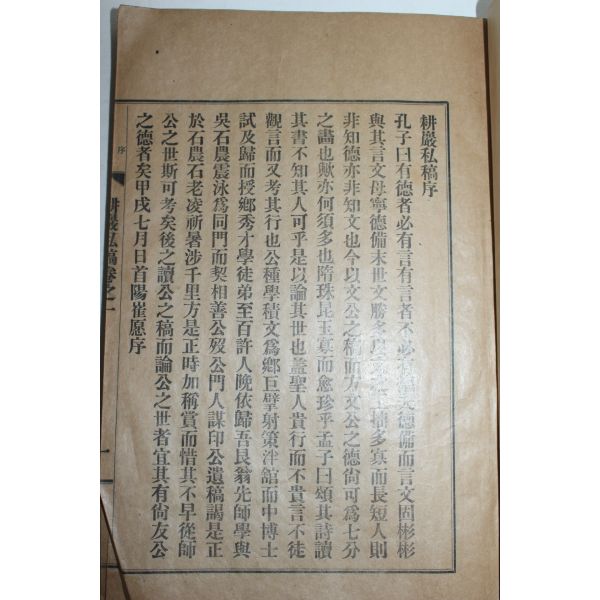 耕巖私稿序
孔子曰有德者必有言言者不必有德夫德備而言文固彬彬
與其言文毋寧德備末世文勝多寡而長短人則
非知德亦非知文也今以文公之稿而方文公之德尙可爲七分
之畵也歟亦何須多也隋珠昆玉寡而愈珍乎孟子曰頌其詩讀
其書不知其人可乎是以論其世也盖聖人貴行而不貴言不徒
觀言而又考其行也公種學積文爲鄕巨擘射策泮舘而中博士
試及歸而授鄕秀才學徒弟至百許人晚依歸吾艮翁先師學與
吳石農震泳爲同門而契相善公歿公門人謀印公遺稿謁是正
於石農石老凌祈暑涉千里方是正時加稱賞而惜其不早從師
公之世斯可考矣後之讀公之稿而論公之世者宜其有尙友公
之德者矣甲戌七月日首陽崔愿序
序
耕巖私稿卷之一
一